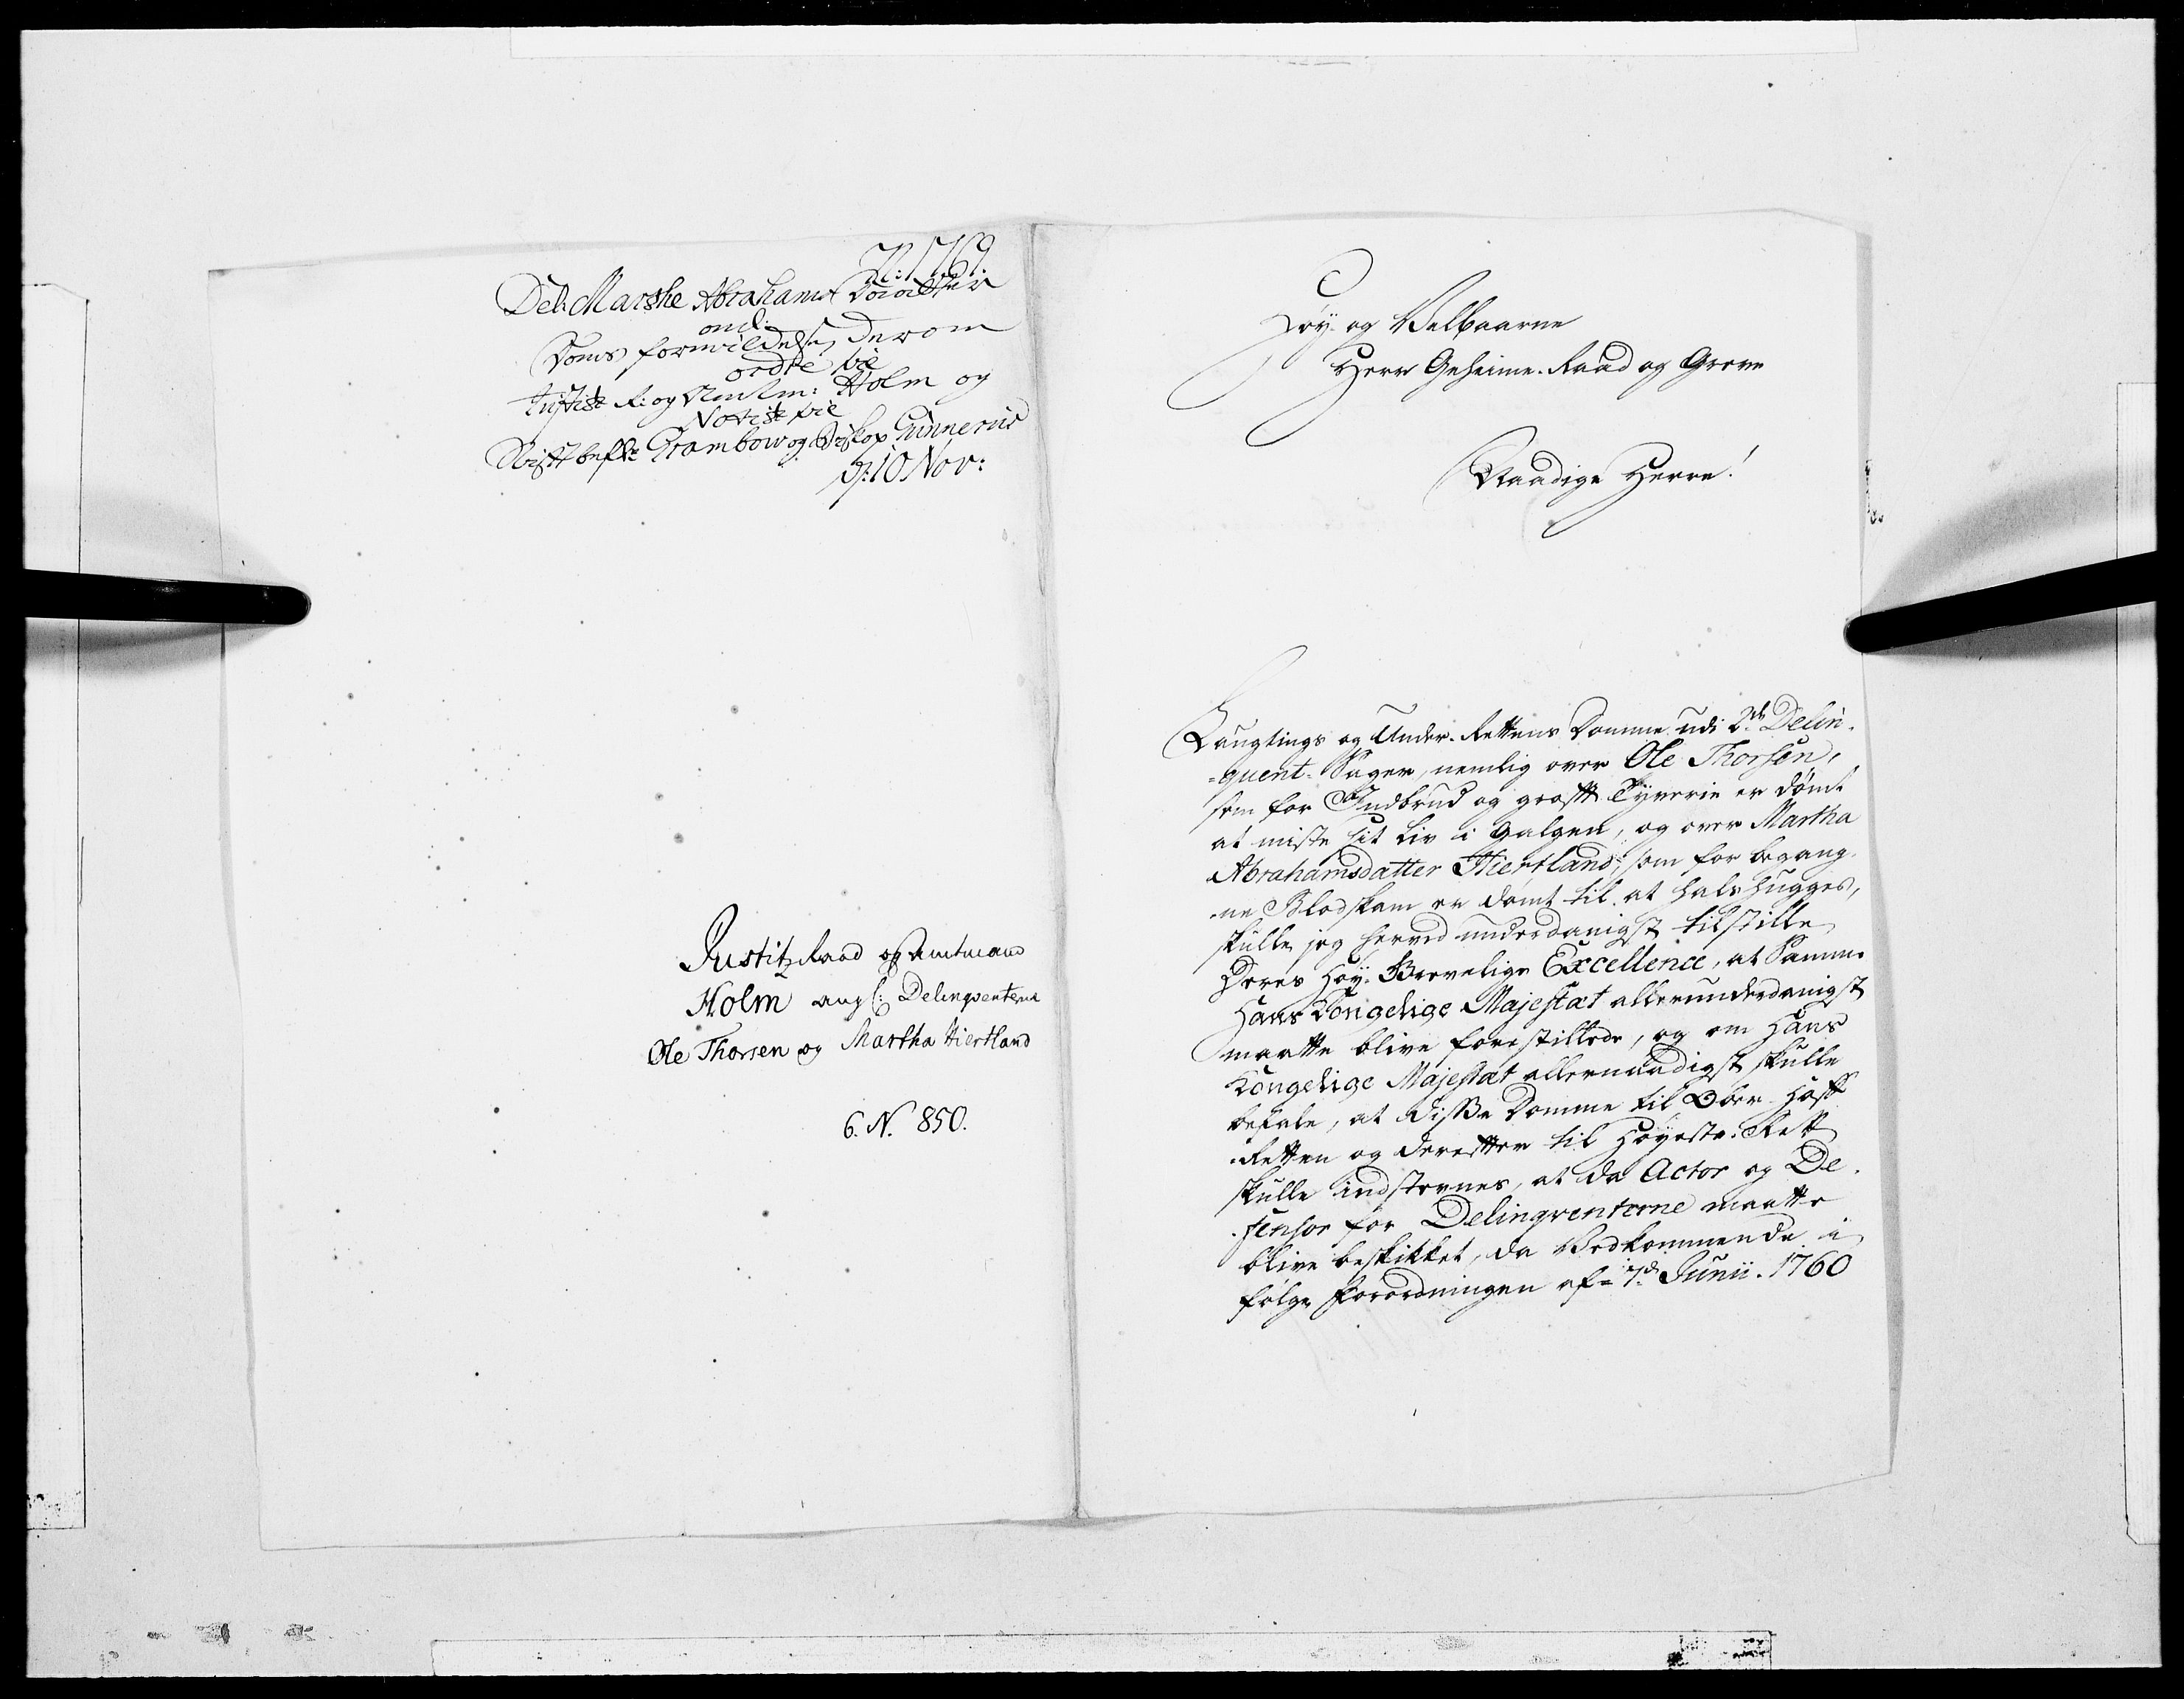 N: 1769.
Del: Marthe Abrahams Daatter
ond:
Doms formildelse, derom
ordre til
Justitz R: og Amtm: Holm og
Notice til
Stiftbefh: Grambow og Biskop Gunnerus
d: 10 Nov:
Justitz Raad og Amtmand
Holm ang: Delinqventerne
Ole Thorsen og Martha Hiertland
6. N. 850.
Høy- og Velbaarne
Herr Geheime-Raad og Greve
Naadige Herre!
Laugtings og Under-Rettens Domme udi 2de Delin-
-quent-Sager, nemlig over Ole Thorsen,
som for Indbrud og groft Tyverie er dømt
at miste sit Liv i Galgen, og over Martha
Abrahamsdatter Hiertland, som for begang-
-ne Blodskam er dømt til at halshugges,
skulle jeg herved underdanigst tilstille
Deres Høy-Grevelige Excellence, at Samme
Hans Kongelige Majestæt allerunderdanigst
maatte blive forestillede, og om Hans
Kongelige Majestæt allernaadigst skulle
befale, at disse Domme til Ober-Hoff-
-Retten og derefter til Høyeste-Rett
skulle indstevnes, at da Actor og De-
-fensor for Delinqventerne maatte
blive beskikket, da Vedkommende i
følge Forordningen af 7de Junii 1760